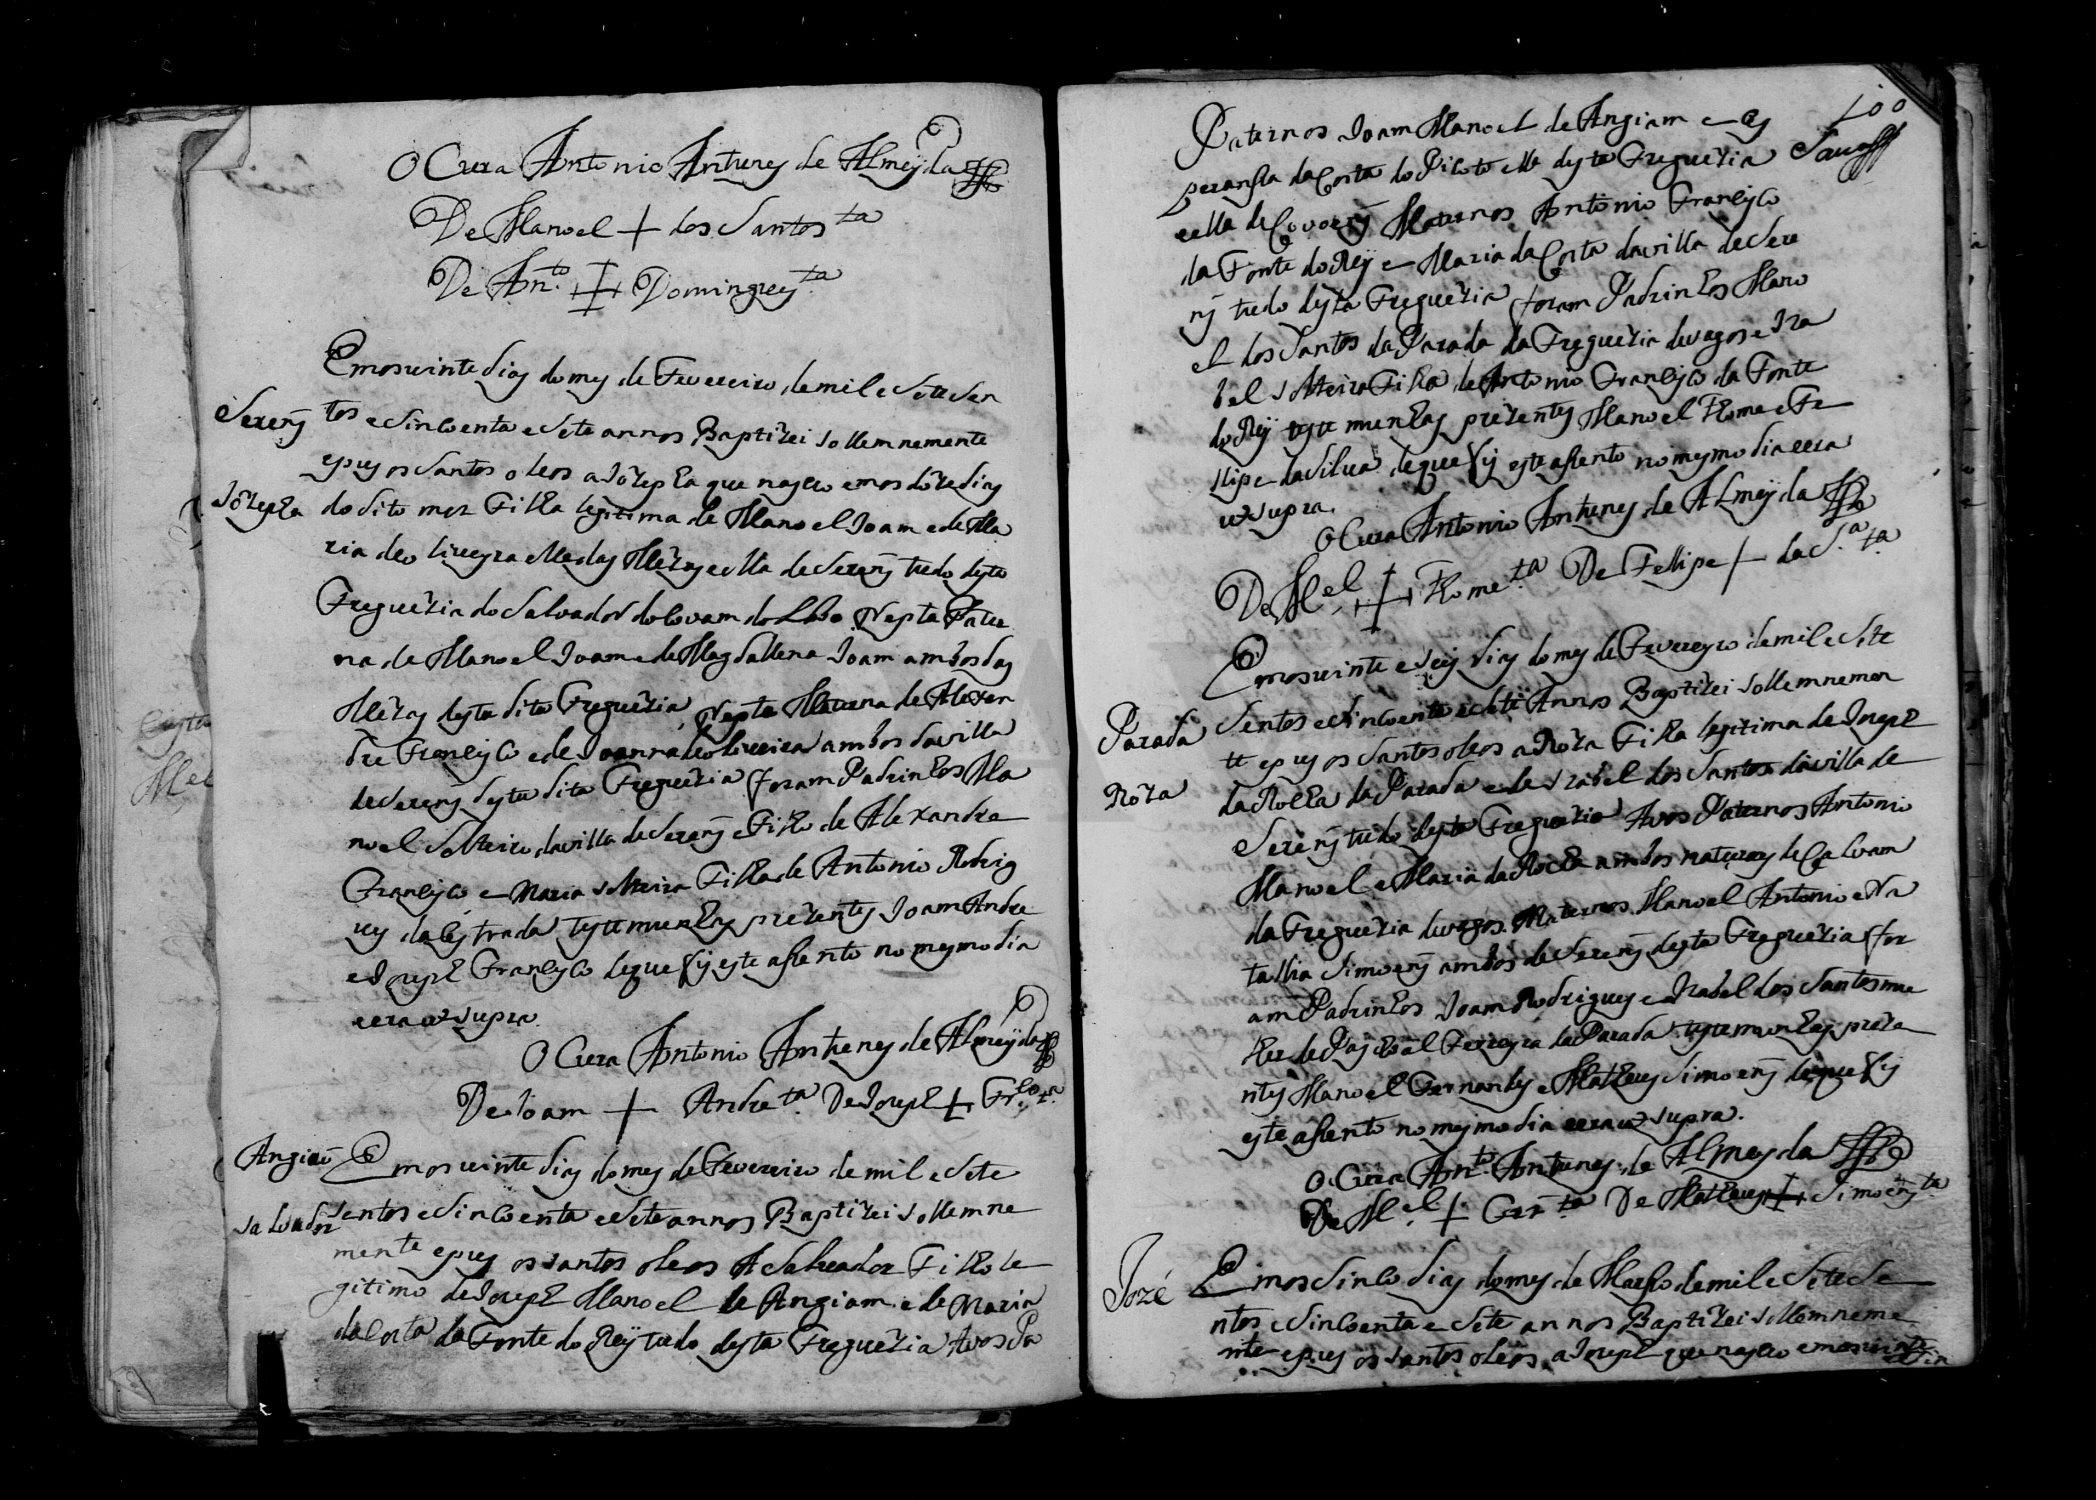 O Cura Antonio Antunes de Almeyda
De Manoel + dos Santos ta
De Ant.to + Domingues ta
Em os vinte dias do mes de Fevereiro de mil e Sete Sen
Serens
tos e Sincoenta e Sete annos Baptizei Sollemnemente
e pus os Santos oleos a Jozepha que nasceo em os doze dias
Jozepha
do dito mez Filha legitima de Manoel Joam e de Ma
ria de oliveyra elle das Mezas e ella de Serens tudo desta
Freguezia do Salvador do Covam do Lobo Nepta Pater
na de Manoel Joam e de Magdallena Joam ambos das
Mezas desta dita Freguezia Nepta Materna de Alexan
dre Francisco e de Joanna de oliveira ambos da villa
de Serens desta dita Freguezia foram Padrinhos Ma
noel Solteiro da villa de Serens e Filho de Alexandre
Francisco e Maria Solteira Filha de Antonio Rodrig
ues da Estrada testemunhas prezentes Joam Andre
e Joseph Francisco de que fis este assento no mesmo dia
e era ut supra.
O Cura Antonio Antunes de Almeyda
De Joam + Andre ta. De Joseph + Fr.co ta.
Angiam
Em os vinte dias do mes de Fevereiro de mil e Sete
Salvador
Sentos e Sincoenta e Sete annos Baptizei Sollemne
mente e pus os santos oleos A Salvador Filho le
gitimo de Joseph Manoel de Angiam e de Maria
da Costa da Fonte do Rey tudo desta Freguezia Avos Pa
100
Paternos Joam Manoel de Angiam e
da Costa do elle desta Freguezia
e ella de Maternos Antonio Francisco
da Fonte do Rey e Maria da Costa da villa de Sere
ns tudo desta Freguezia foram Padrinhos Mano
el dos Santos da Parada da Freguezia de vagos e Iza
bel Solteira Filha de Antonio Francisco da Fonte
do Rey testemunhas prezentes Manoel Thome e Fe
llipe da Silva de que fis este assento no mesmo dia e era
ut supra.
O Cura Antonio Antunes de Almeyda
De M.el + Thome ta De Fellipe + da S.a ta
Em os vinte e seis dias do mes de Fevereyro de mil e Sete
Parada
Sentos e Sincoenta e Sete Annos Baptizei Sollemnemen
te e pus os Santos oleos a Roza Filha legitima de Joseph
Roza
da Rocha da Parada e de Izabel dos Santos da villa de
Serens tudo desta Freguezia Avos Paternos Antonio
Manoel e Maria da Rocha ambos naturaes de Calvam
da Freguezia de vagos. Maternos Manoel Antonio e Na
tallia Simoens ambos de Serens desta Freguezia for
am Padrinhos Joam Rodrigues e Izabel dos Santos mu
lher de Pascoal Ferreyra da Parada testemunhas preze
ntes Manoel Fernandes e Matheus Simoens de que fis
este assento no mesmo dia e era ut supra.
O Cura Ant.to Antunes de Almeyda
De M.el + ta De Matheus + Simoens ta
José
Em os Sinco dias do mes de Março de mil e Sete Se
ntos e Sincoenta e Sete annos Baptizei Sollemneme
nte e pus os santos oleos a Joseph que nasceo em os vinte